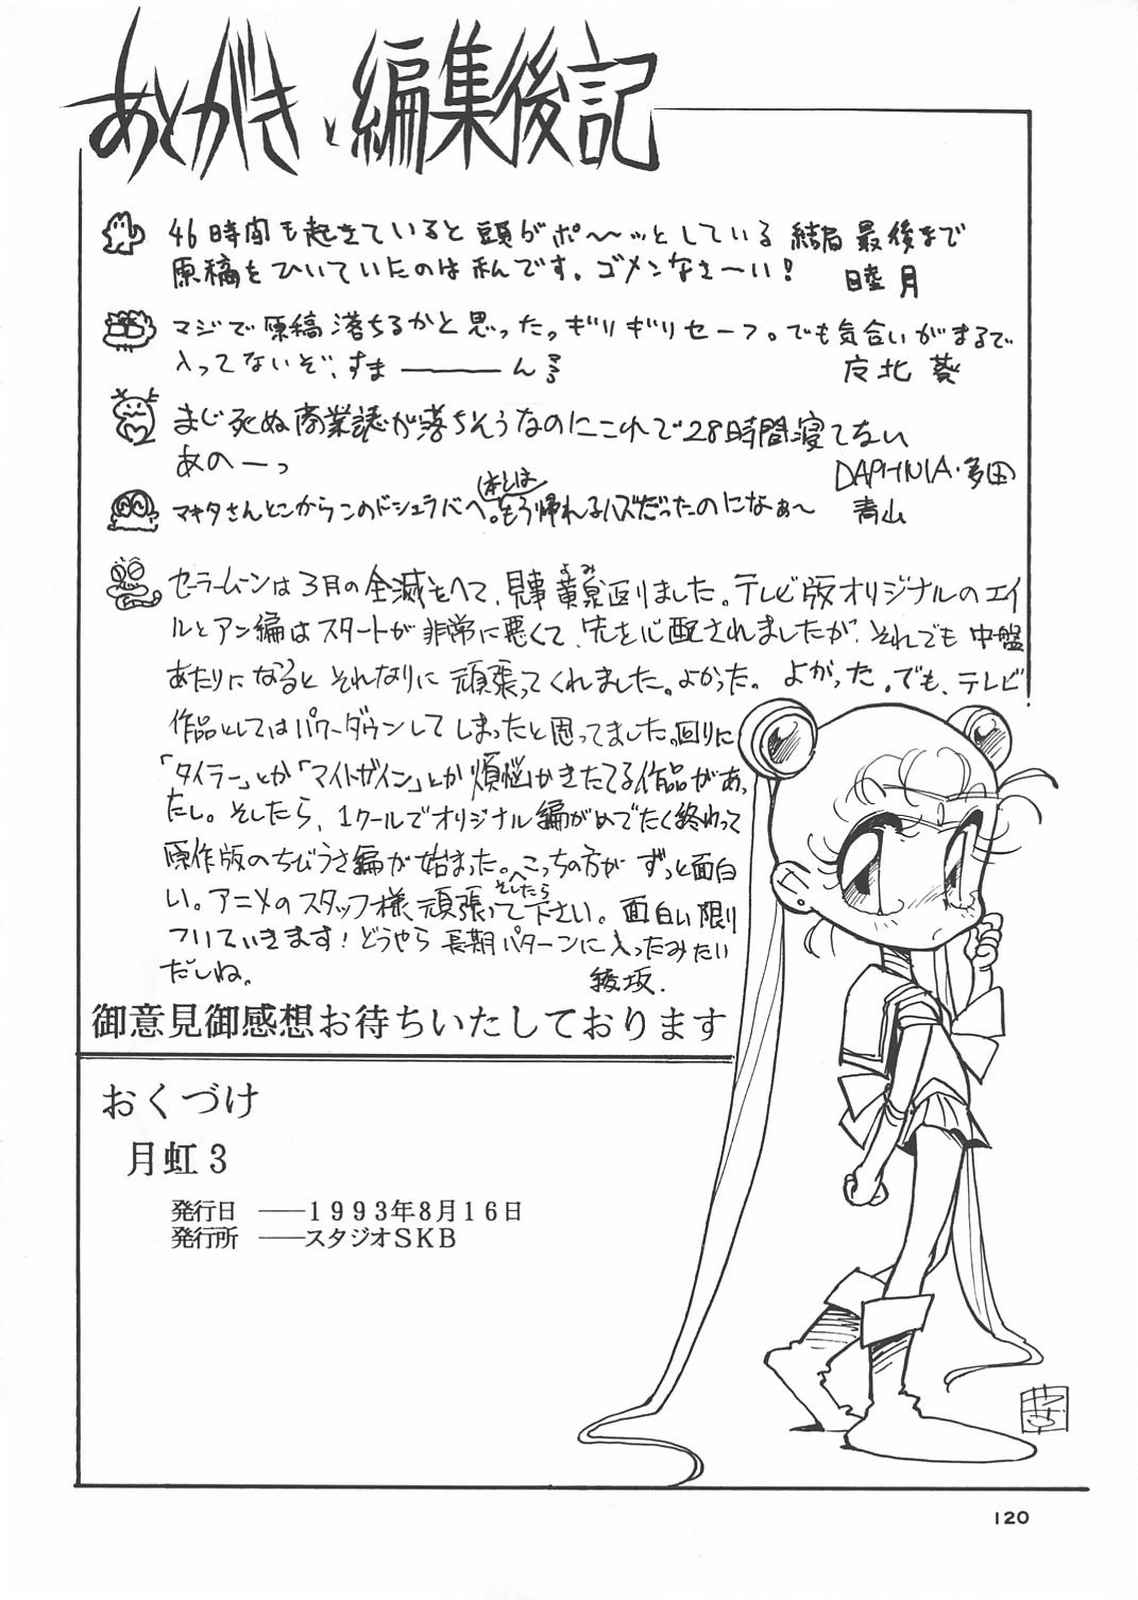 あとがきと編集後記
46時間も起きていると頭がポ〜〜ッとしている 結局 最後まで
原稿をひいていたのは私んです。ゴメンなさ〜い!
睦月
マジで原稿落ちるかと思った。ギリギリセーフ。でも気合いがまるで
入ってないぞ、すまーーーーん
友北 葵
まじ死ぬ商業誌が落ちそうなのにこれで28時間寝てない
あのーっ
DAPHNIA・多田
マキタさんとこからこのドシュラバへ。本とはもう帰れるハズだったのになぁ〜
青山
セーラームーンは3月の全滅をへて、見事黄泉返りました。テレビ版オリジナルのエイ
よみ
ルとアン編はスタートが非常に悪くて、先を心配されましたが、それでも中盤
あたりになるとそれなりに頑張ってくれました。よかった。よかった。でも、テレビ
作品としてはパワーダウンしてしまったと思ってました。回りに
「タイラー」とか「マイトガイン」とか煩悩かきたてる作品があっ
たし。そしたら、1クールでオリジナル編がめでたく終わって
原作版のちびうさ編が始まった。こっちの方がずっと面白
い。アニメのスタッフ様、頑張って下さい。そしたら面白い限り
ついていきます!どうやら長期パターンに入ったみたい
だしね。
綾坂.
御意見御感想お待ちいたしております
おくづけ
月虹3
発行日 ――1993年8月16日
発行所 ――スタジオSKB
120